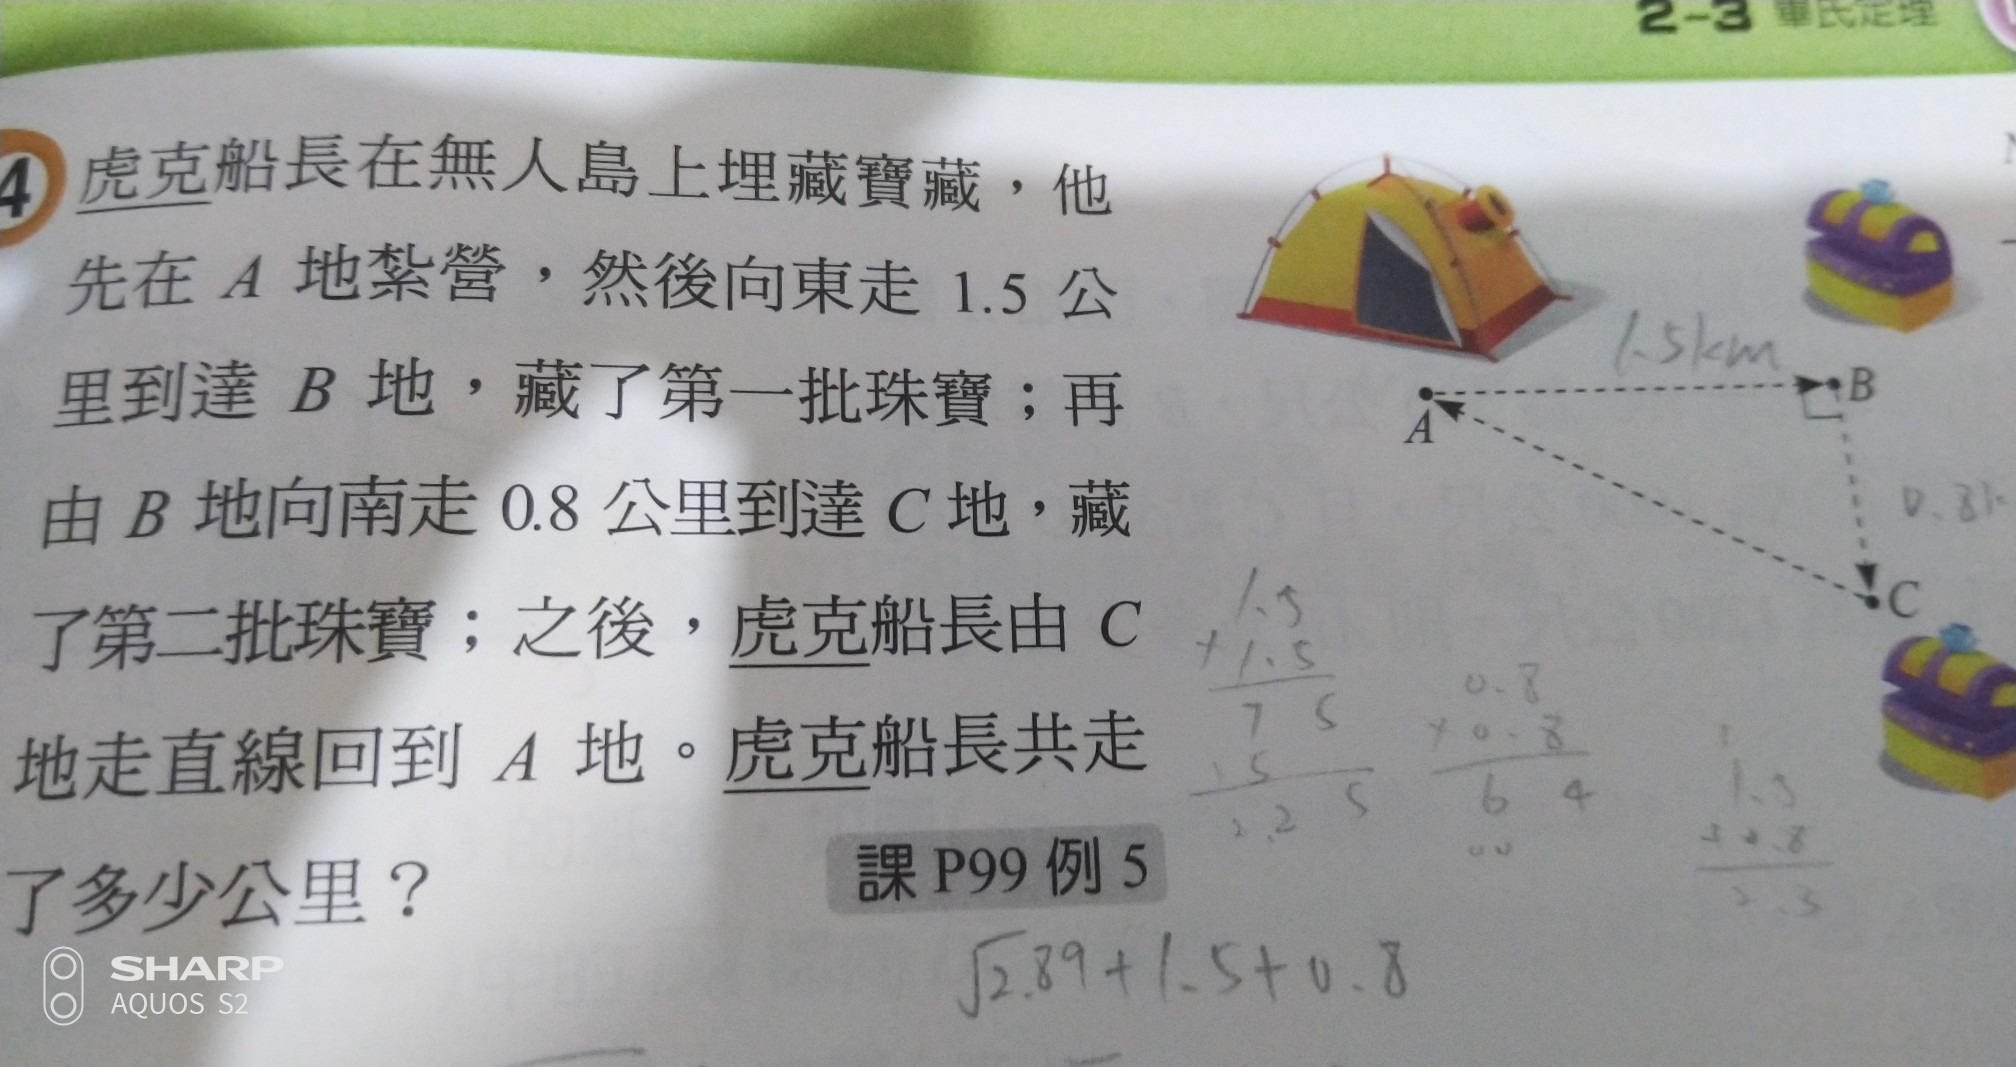 2-3 畢氏定理
4 虎克船長在無人島上埋藏寶藏，他
先在 A 地紮營，然後向東走 1.5 公
里到達 B 地，藏了第一批珠寶；再
由 B 地向南走 0.8 公里到達 C 地，藏
了第二批珠寶；之後，虎克船長由 C
地走直線回到 A 地。虎克船長共走
了多少公里？
課 P99 例 5
1.5km
A
B
0.8k
C
1.5
×1.5
7 5
1 5
2.2 5
0.8
×0.8
6 4
00
1
1.5
+0.8
2.3
√2.89+1.5+0.8
SHARP
AQUOS S2